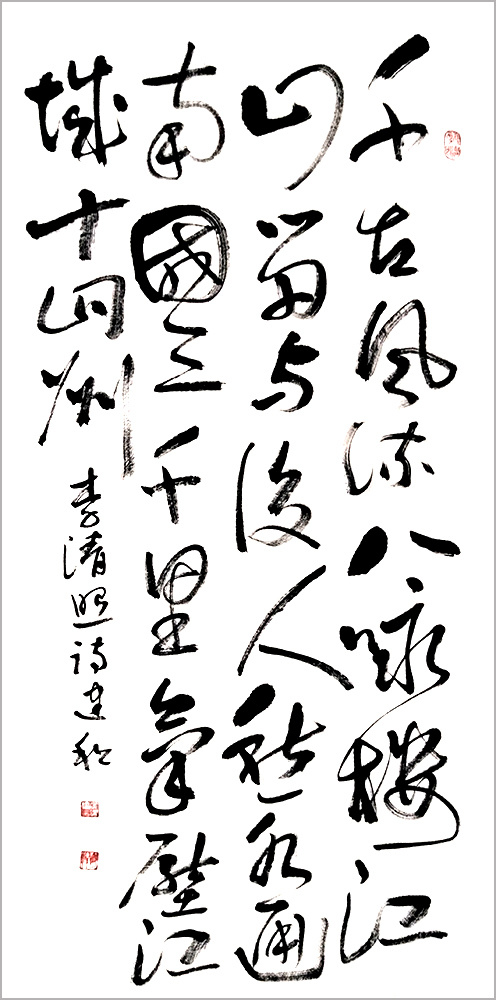 千古風流八詠樓江
山留与後人愁水通
南國三千里氣壓江
城十四州
李清照詩建和